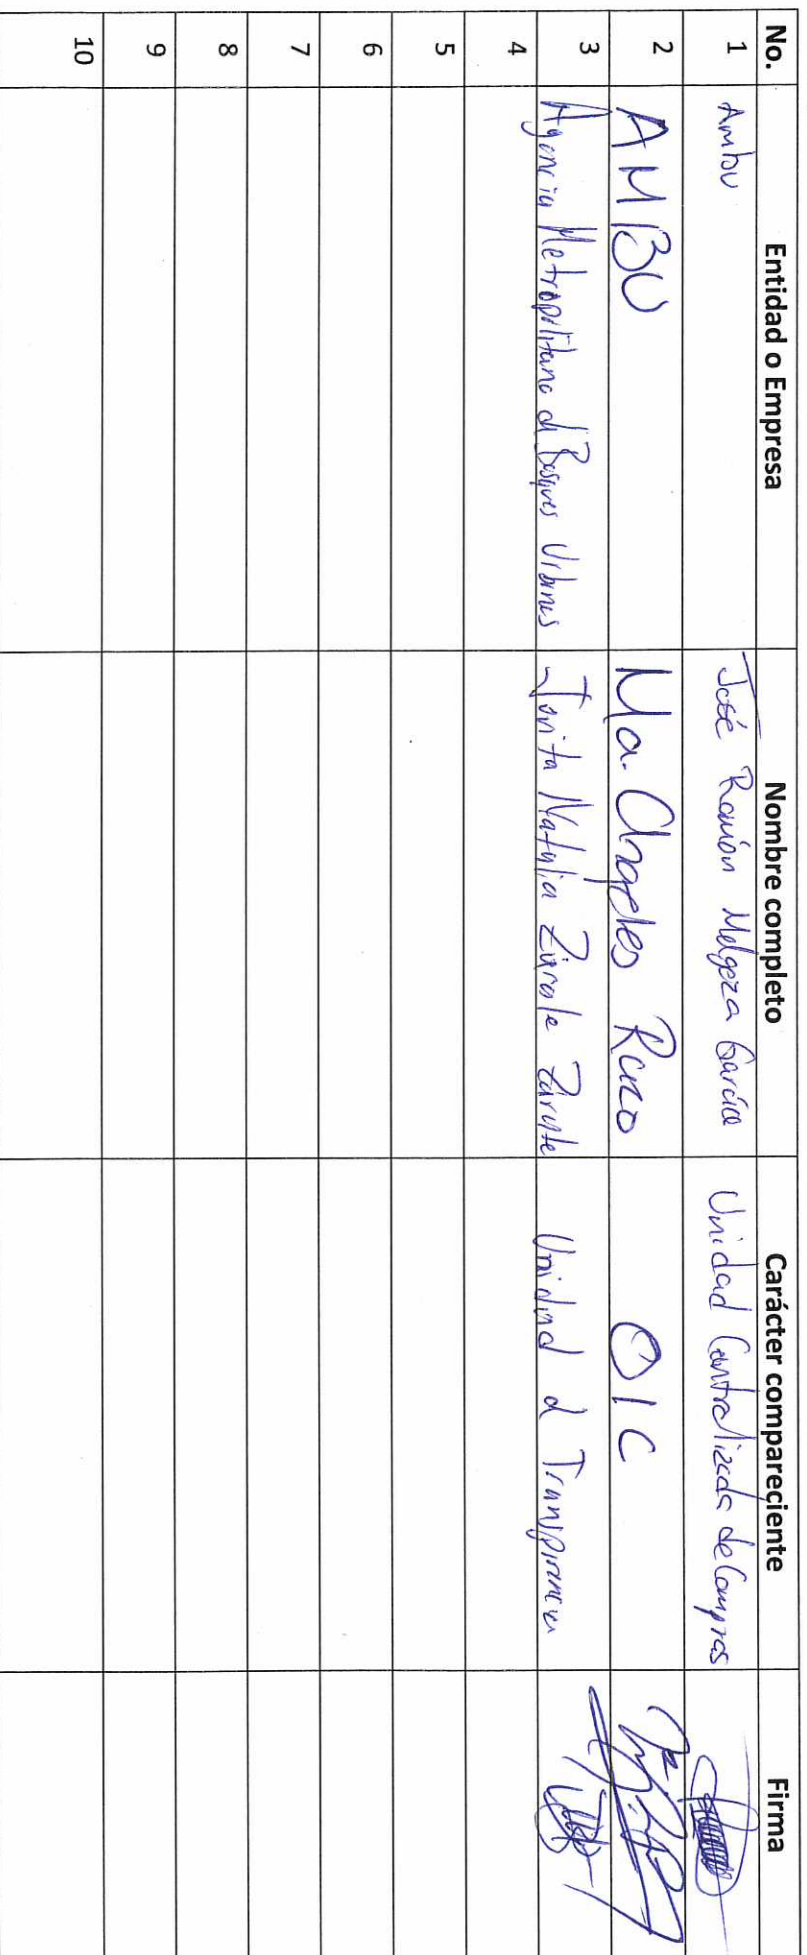 No. Entidad o Empresa Nombre completo Carácter compareciente Firma
1 Ambu José Ramón Melgoza García Unidad Centralizada de Compras
2 AMBU Ma. Angeles OIC
3 Agencia Metropolitana d Bosques Urbanos Jovita Natalia Zárate Zárate Unidad d Transparencia
4
5
6
7
8
9
10